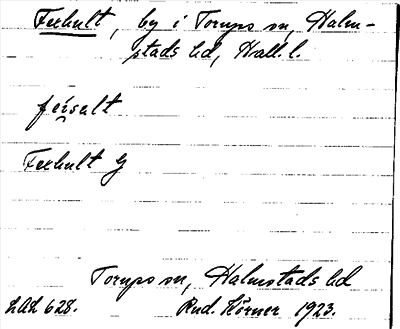 Fexhult, by i Torups sn, Halm-
stads hd, Hall. l.
feiselt
Fexhult G
Torups sn, Halmstads hd
LAL 628. Rud. Körner 1923.